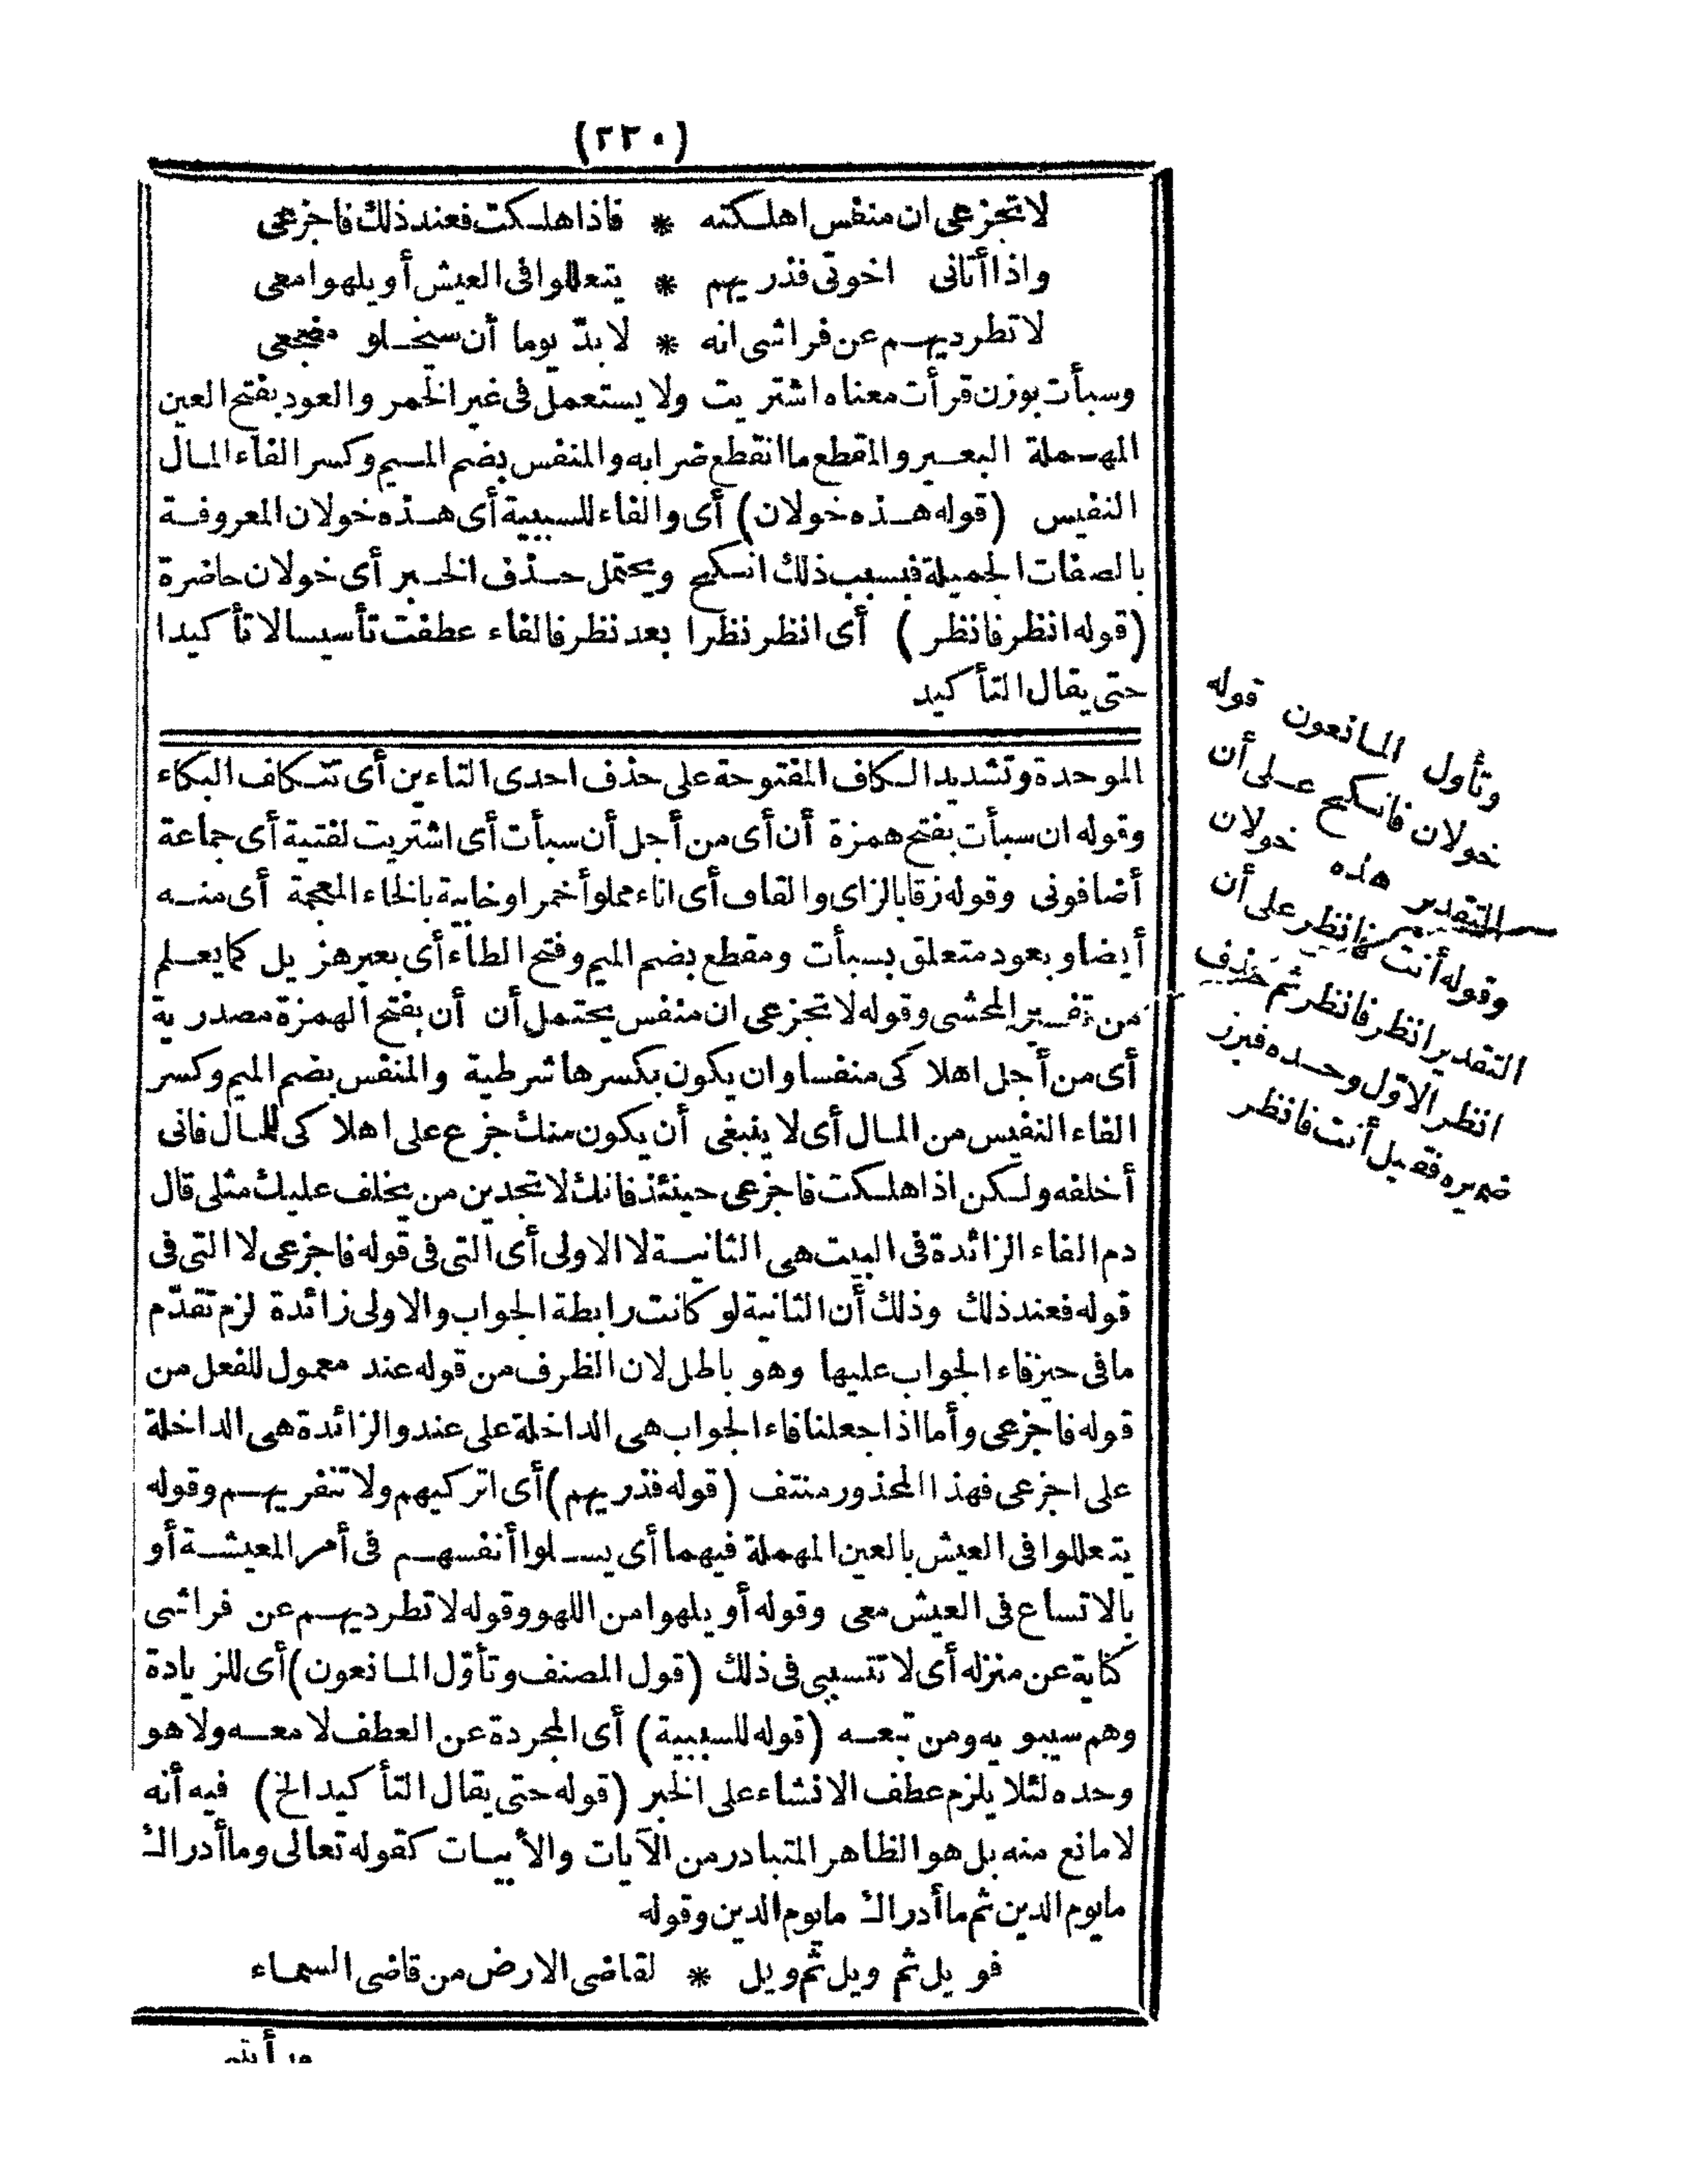 (٣٣٠)
لا تجزعى ان منفس اهلكته * فاذا هلكت فعند ذلك فاجزعى
واذا أتانى اخوتى فذريهم * يتعللوا فى العيش أو يلهوا معى
لا تطرديهم عن فراشى انه * لا بدّ يوما أن سيخلو مضجعى
وسبأت بوزن قرأت معناه اشتريت ولا يستعمل فى غير الخمر والعود بفتح العين
المهملة البعير والمقطع ما انقطع ضرابه والمنفس بضم الميم وكسر الفاء المال
النفيس (قوله هذه خولان) أى والفاء للسببية أى هذه خولان المعروفة
بالصفات الجميلة فبسبب ذلك انكح ويحتمل حذف الخبر أى خولان حاضرة
(قوله انظر فانظر) أى انظر نظرا بعد نظر فالفاء عطفت تأسيسا لا تأكيدا
حتى يقال التأكيد
وتأول المانعون قوله
خولان فانكح على أن
التقدير هذه خولان
وقوله أنت فانظر على أن
التقدير انظر فانظر ثم حذف
انظر الاوّل وحده فبرز
ضميره فقيل أنت فانظر
الموحدة وتشديد الكاف المفتوحة على حذف احدى التاءين أى تتكاف البكاء
وقوله ان سبأت بفتح همزة أن أى من أجل أن سبأت أى اشتريت لفتية أى جماعة
أضافونى وقوله زقا بالزاى والقاف أى اناء مملوأ خمرا وخابية بالخاء المعجمة أى منه
أيضا وبعود متعلق بسبأت ومقطع بضم الميم وفتح الطاء أى بعير هزيل كما يعلم
من تفسير المحشى وقوله لا تجزعى ان منفس يحتمل أن أن بفتح الهمزة مصدرية
أى من أجل اهلاكى منفسا وان يكون بكسرها شرطية والمنفس بضم الميم وكسر
الفاء النفيس من المال أى لا ينبغى أن يكون منك جزع على اهلاكى للمال فانى
أخلفه ولكن اذا هلكت فاجزعى حينئذ فانك لا تجدين من يخلف عليك مثلى قال
دم الفاء الزائدة فى البيت هى الثانية لا الاولى أى التى فى قوله فاجزعى لا التى فى
قوله فعند ذلك وذلك أن الثانية لو كانت رابطة الجواب والاولى زائدة لزم تقدّم
ما فى حيز فاء الجواب عليها وهو باطل لان الظرف من قوله عند معمول للفعل من
قوله فاجزعى وأما اذا جعلنا فاء الجواب هى الداخلة على عند والزائدة هى الداخلة
على اجزعى فهذا المحذور منتف (قوله فذريهم) أى اتركيهم ولا تنفريهم وقوله
يتعللوا فى العيش بالعين المهملة فيهما أى يسلوا أنفسهم فى أمر المعيشة أو
بالاتساع فى العيش معى وقوله أو يلهوا من اللهو وقوله لا تطرديهم عن فراشى
كناية عن منزله أى لا تتسببى فى ذلك (قول المصنف وتأوّل المانعون) أى للزيادة
وهم سيبويه ومن تبعه (قوله للسببية) أى المجردة عن العطف لا معه ولا هو
وحده لئلا يلزم عطف الانشاء على الخبر (قوله حتى يقال التأكيد الخ) فيه أنه
لا مانع منه بل هو الظاهر المتبادر من الآيات والأبيات كقوله تعالى وما أدراك
ما يوم الدين ثم ما أدراك ما يوم الدين وقوله
فويل ثم ويل ثم ويل * لقاضى الارض من قاضى السماء